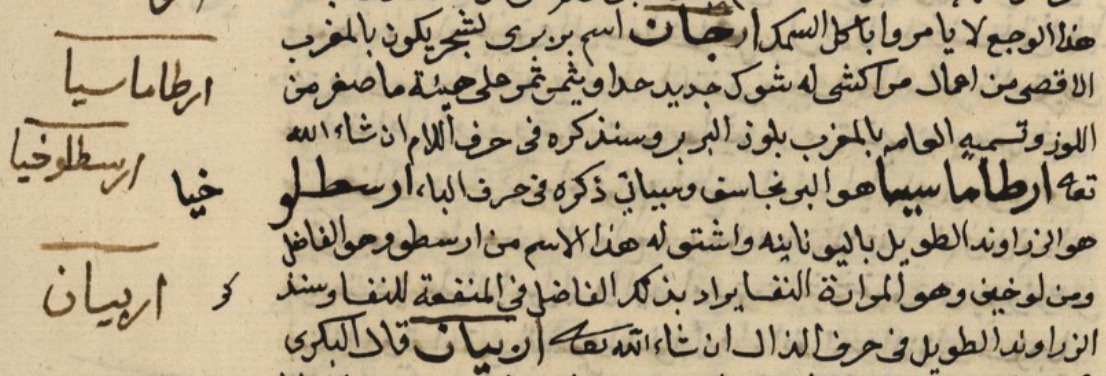 هذا الوجع لا يامروا باكل السمك ارجان اسم بربرى لشجر يكون بالمغرب
الاقصى من اعمال مراكش له شوك حديد حدا ويثمر ثمر على هيئة ما صغر من
اللوز وتسميه العامه بالمغرب بلوز البربر وسنذكره فى حرف اللام ان شاء الله
تعه ارطاماسيا هو البرنجاسف وسياتى ذكره فى حرف الباء، ارسطلو
خيا
هو الزراوند الطويل باليونانيه واشتق له هذا الاسم من ارسطو وهو الفاضل
ومن لوخيى وهو المراة النفسا يراد بذلك الفاضل فى المنفعة للنفسا وسنذ
كر
الزراوند الطويل فى حرف الذال ان شاء الله تعه اربيان قال البكرى
ارطاماسيا
ارسطلوخيا
اربيان